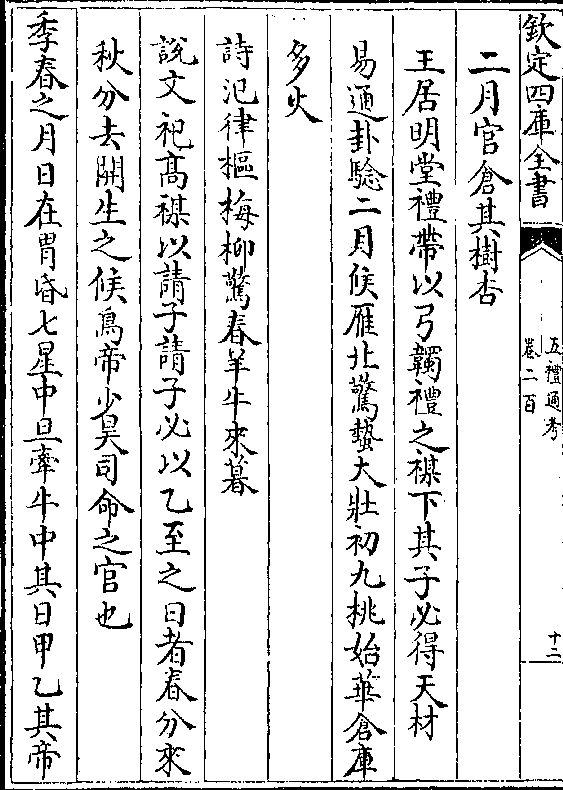 欽定四庫全書
五禮通考
卷二百
十二
二月官倉其樹杏
王居明堂禮帶以弓韣禮之禖下其子必得天材
易通卦驗二月候雁北驚蟄大壯初九桃始華倉庫
多火
詩氾律樞梅柳驚春羊牛來暮
說文祀高禖以請子請子必以乙至之日者春分來
秋分去開生之候鳥帝少昊司命之官也
季春之月日在胃昏七星中旦牽牛中其日甲乙其帝